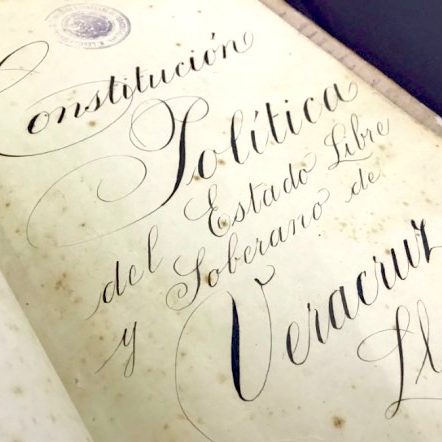 Constitución
Política
del Estado Libre
y Soberano de
Veracruz
Ll